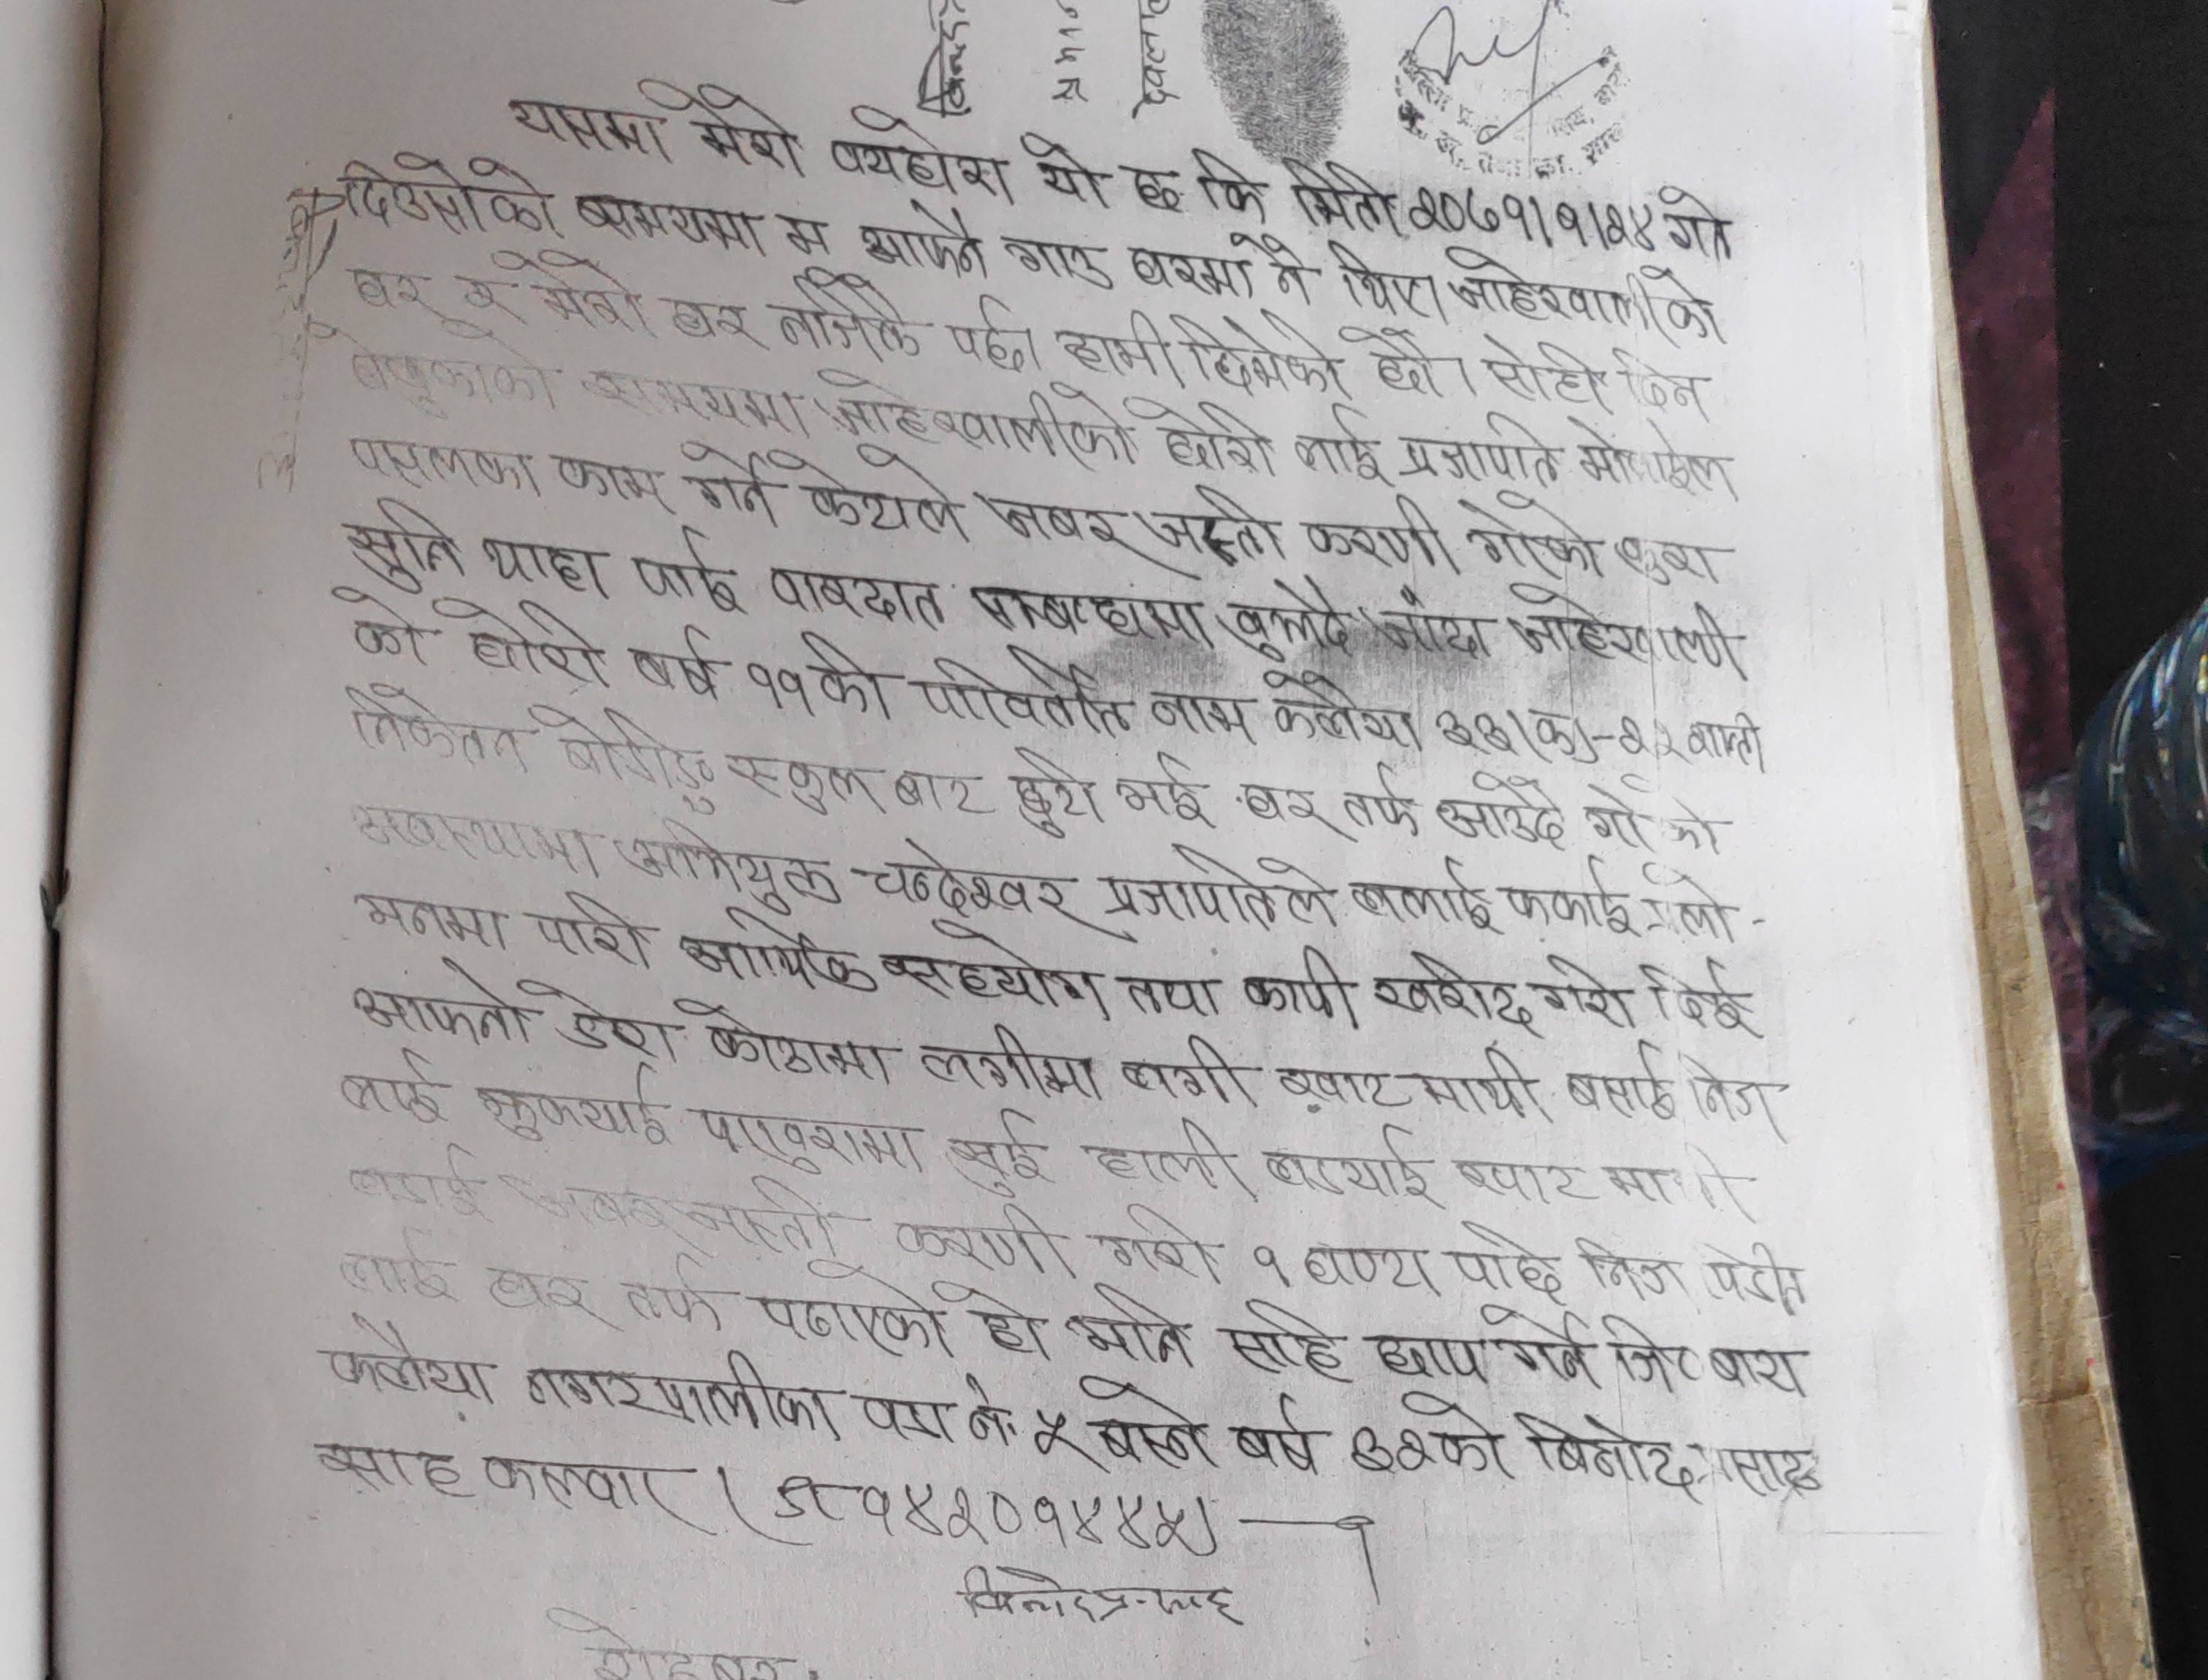 देवलाल
यसमा मेरो व्यहोरा यो छ कि मिति २०७१।१।२४ गते
दिउसोको समयमा म आफ्नै गाउ घरमा नै थिए। जाहेरवालीको
घर र मेरो घर नजिकै पर्छ। हामी छिमेकी हौ। सोही दिन
बेलुकाको समयमा जाहेरवालीको छोरी लाई प्रजापति मोबाईल
पसलका काम गर्ने केटाले जबर जस्ती करणी गरेको कुरा
सुनि थाहा पाई वारदात सम्बन्धमा बुझ्दै जाँदा जाहेरवाली
को छोरी बर्ष ११ को परिवर्तित नाम कलैया ३३(क)-२२ वाली
निकेतन बोर्डिङ्ग स्कुल बाट छुटी भई घर तर्फ आउँदै गरेको
अवस्थामा अभियुक्त चन्देश्वर प्रजापतिले ललाई फकाई प्रलो-
भनमा पारी आर्थिक सहयोग तथा कापी खरीद गरी दिई
आफ्नो डेरा कोठामा लगीमा लगी खाट माथी बसाई निज
लाई झुक्याई पाखुरामा सुई हाली लठ्याई खाट माथी
लडाई जबरजस्ती करणी गरी १ घण्टा पछि निज पिडीत
लाई घर तर्फ पठाएको हो भनि सहि छाप गर्ने जि. बारा
कलैया नगरपालीका वडा नं. ५ बस्ने बर्ष ३२को बिनोद प्रसाद
साह कलवार (९८१४२०१४४५) —१
बिनोद प्र. साह
रोहबर: